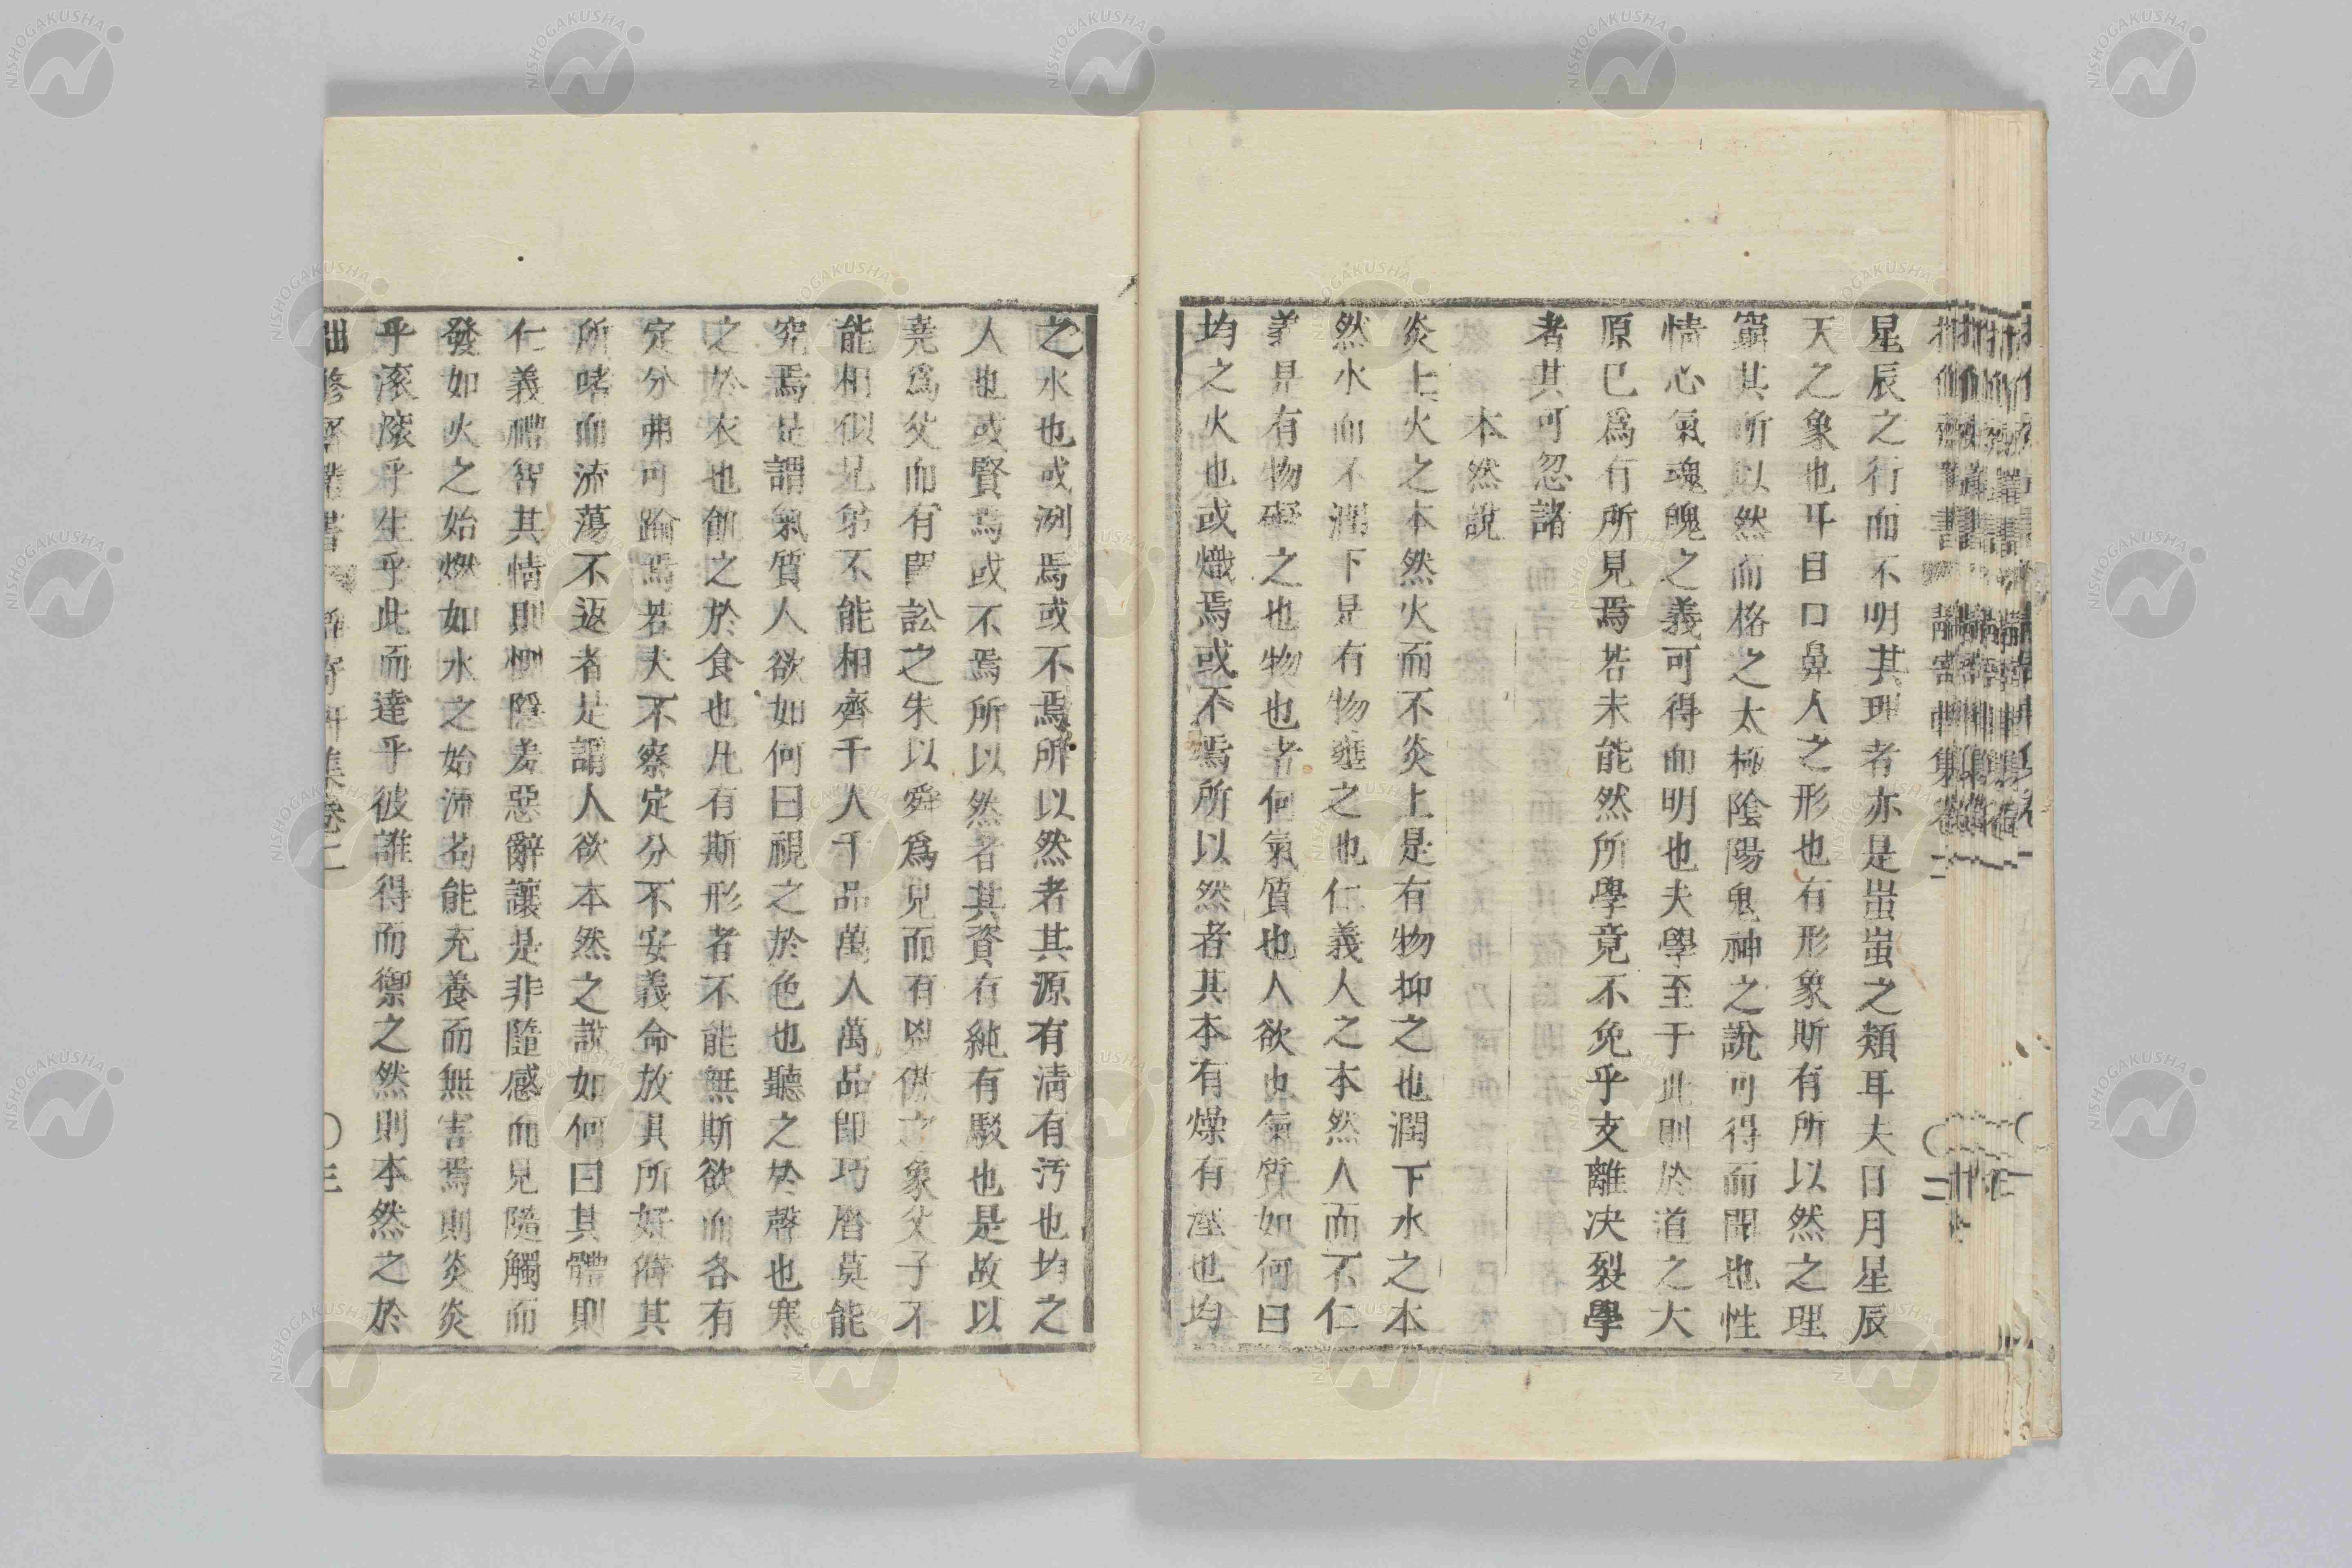 星辰之行而不明其理者亦是蚩蚩之類耳夫日月星辰
天之象也耳目口鼻人之形也有形象斯有所以然之理
窮其所以然而格之太極陰陽鬼神之說可得而聞也性
情心氣魂魄之義可得而明也夫學至于此則於道之大
原已爲有所見焉若未能然所學竟不免乎支離决裂學
者其可忽諸
本然說
炎上火之本然火而不炎上是有物抑之也潤下水之本
然水而不潤下是有物壅之也仁義人之本然人而不仁
義是有物礙之也物也者何氣質也人欲也氣質如何曰
均之火也或熾焉或不焉所以然者其本有燥有溼也均
之水也或洌焉或不焉所以然者其源有淸有汚也均之
人也或賢焉或不焉所以然者其資有純有駁也是故以
堯爲父而有嚚訟之朱以舜爲兄而有傲之象父子不
能相似兄弟不能相齊千人千品萬人萬品卽巧曆莫能
究焉是謂氣質人欲如何曰視之於色也聽之於聲也寒
之於衣也飢之於食也凡有斯形者不能無斯欲而各有
定分弗可踰焉若夫不察定分不安義命放其所好其
所嗜而流蕩不返者是謂人欲本然之說如何曰其體則
仁義禮智其情則惻隱羞惡辭讓是非隨感而見隨觸而
發如火之始燃如水之始流苟能充養而無害焉則炎炎
乎滾滾乎生乎此而達乎彼誰得而禦之然則本然之於
集卷二 〇三
NISHOGAKUSHA